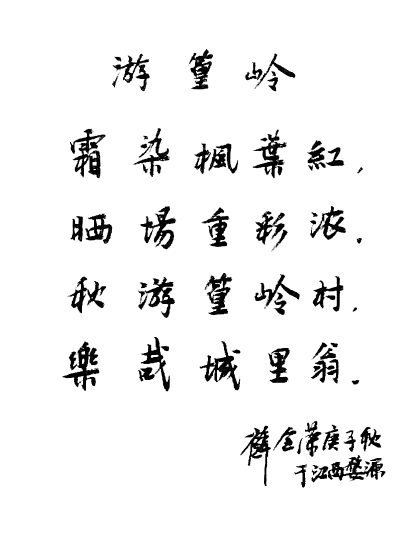 游篁岭
霜染楓葉紅，
晒場重彩浓。
秋游篁岭村，
樂哉城里翁。
薛金荣庚子秋
于江西婺源